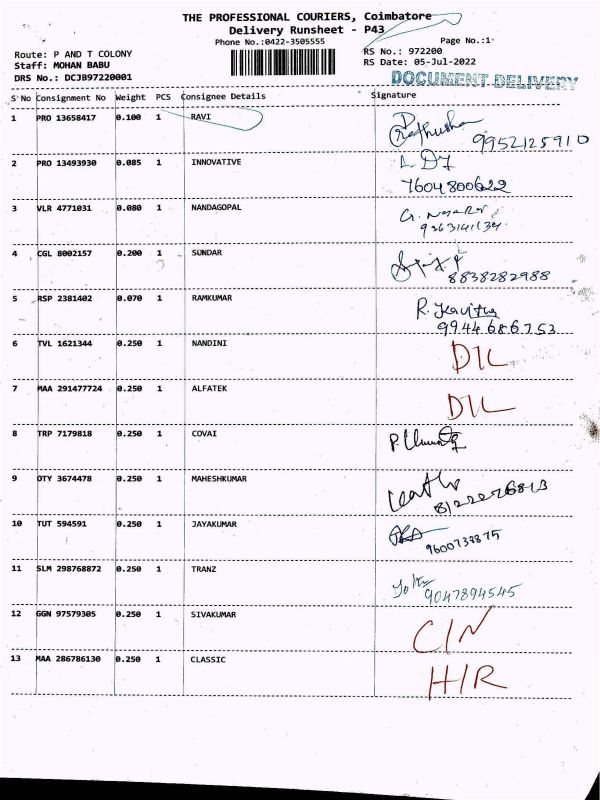 THE PROFESSIONAL COURIERS, Coimbatore
Delivery Runsheet - P43
Phone No.:0422-3505555 Page No.:1
Route: P AND T COLONY RS No.: 972200
Staff: MOHAN BABU RS Date: 05-Jul-2022
DRS No.: DCJB97220001
DOCUMENT DELIVERY
S No Consignment No Weight PCS Consignee Details Signature
1 PRO 13658417 0.100 1 RAVI
9952125910
2 PRO 13493930 0.085 1 INNOVATIVE
7604800622
3 VLR 4771031 0.080 1 NANDAGOPAL
4 CGL 8002157 0.200 1 SUNDAR
8838282988
5 RSP 2381402 0.070 1 RAMKUMAR R. Kavitha
9944686753
6 TVL 1621344 0.250 1 NANDINI D/L
7 MAA 291477724 0.250 1 ALFATEK D/L
8 TRP 7179818 0.250 1 COVAI
9 OTY 3674478 0.250 1 MAHESHKUMAR
10 TUT 594591 0.250 1 JAYAKUMAR
9600733875
11 SLM 298768872 0.250 1 TRANZ
9047894545
12 GGN 97579305 0.250 1 SIVAKUMAR C/N
13 MAA 286786130 0.250 1 CLASSIC H/R